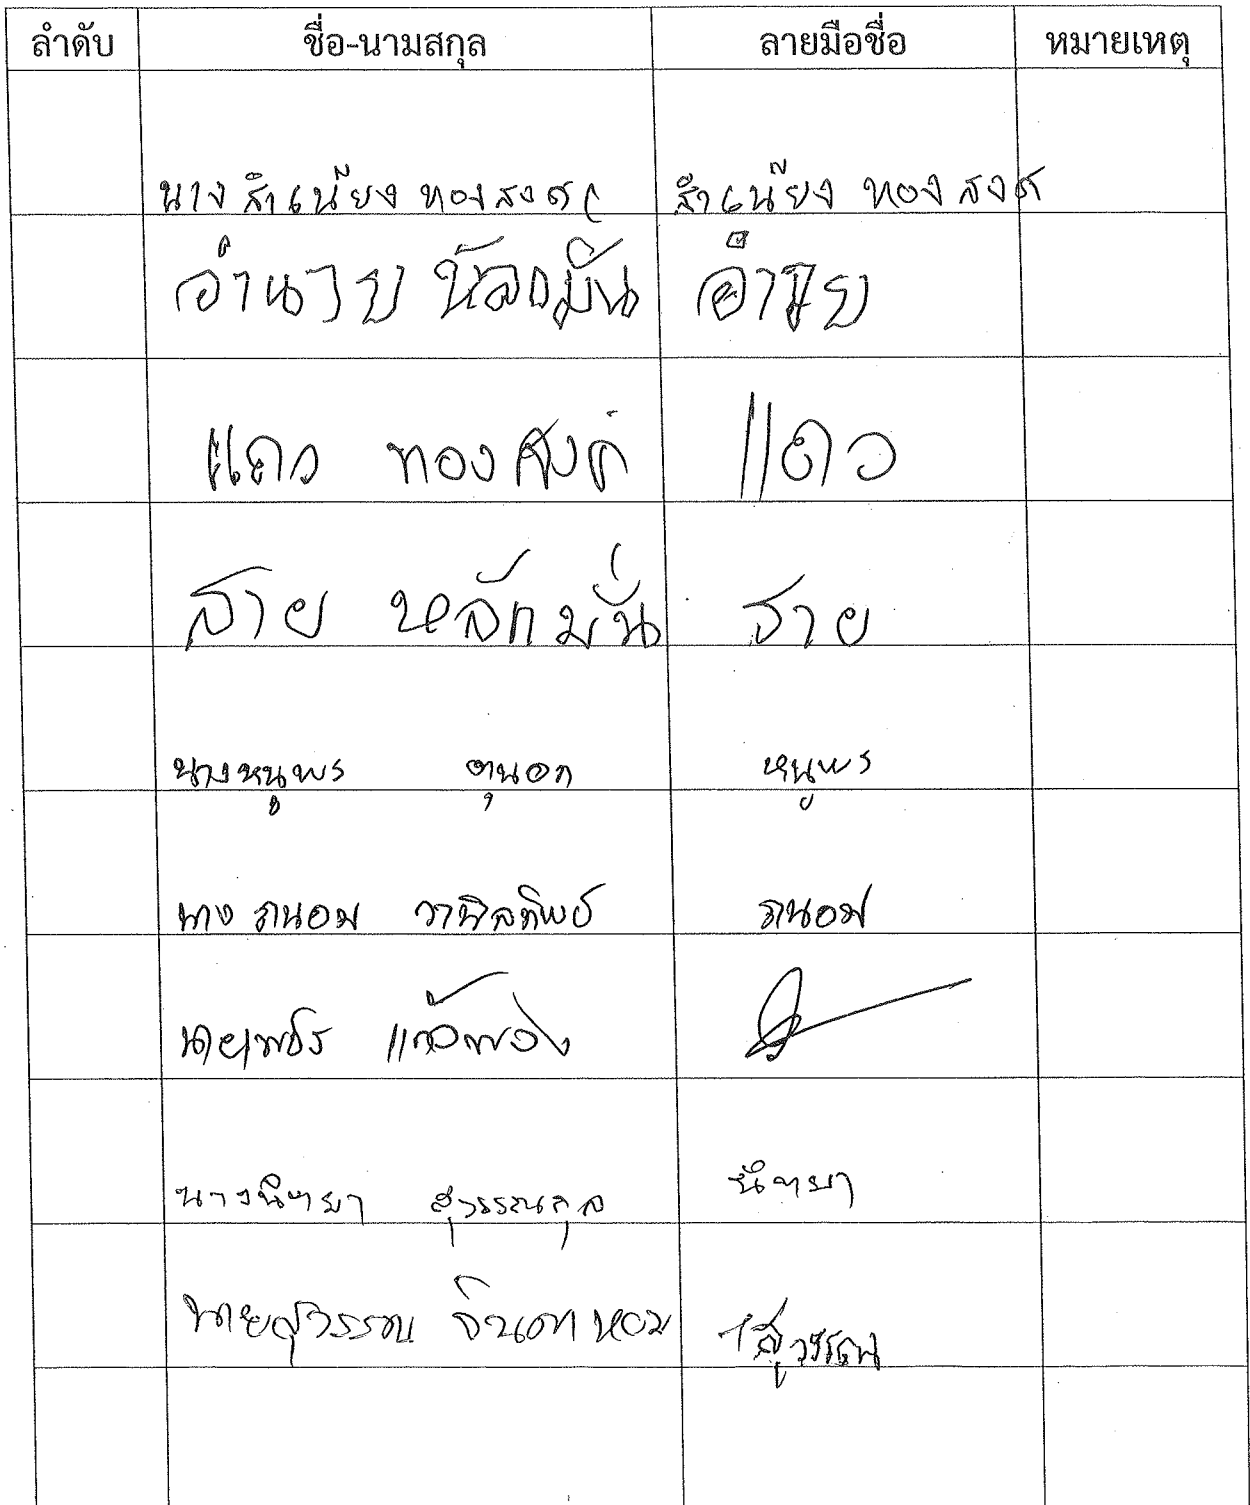 ลำดับ ชื่อ-นามสกุล ลายมือชื่อ หมายเหตุ
นาง สำเนียง ทองสงค์ สำเนียง ทองสงค์
อำนวย หลักมั่น อำนวย
แถว ทองสงค์ แถว
สาย หลักมั่น สาย
นางหนูพร คุนอก หนูพร
นาง ถนอม ถนอม
นายเพชร แก้วพวง
นางนิทยา สุวรรณกุล นิทยา
นายสุวรรณ จินดาหอม สุวรรณ